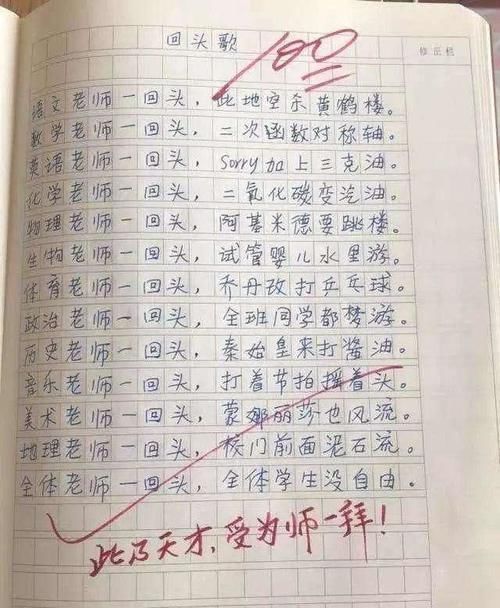 回头歌
100
修正栏
语文老师一回头，此地空余黄鹤楼。
数学老师一回头，二次函数对称轴。
英语老师一回头，sorry加上三克油。
化学老师一回头，二氧化碳变汽油。
物理老师一回头，阿基米德要跳楼。
生物老师一回头，试管婴儿水里游。
体育老师一回头，乔丹改打乒乓球。
政治老师一回头，全班同学都梦游。
历史老师一回头，秦始皇来打酱油。
音乐老师一回头，打着节拍摇着头。
美术老师一回头，蒙娜丽莎也风流。
地理老师一回头，校门前面泥石流。
全体老师一回头，全体学生没自由。
此乃天才，受为师一拜！